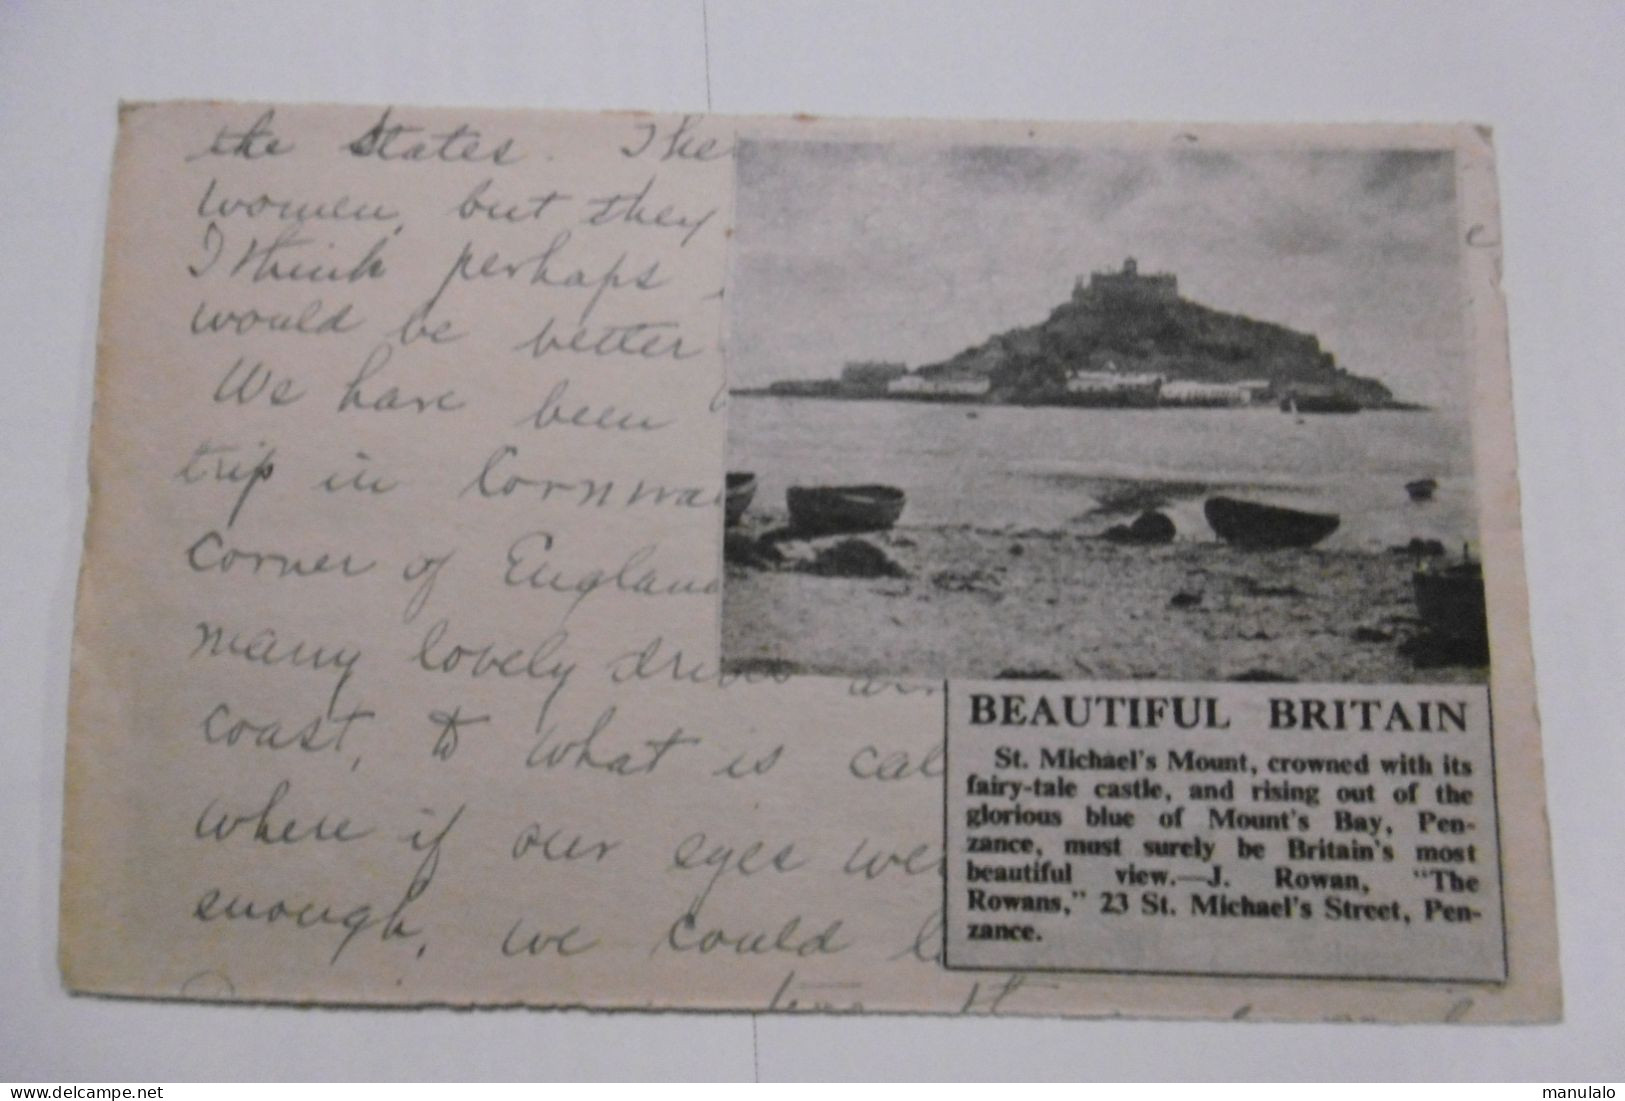 the States. The
women, but they
I think perhaps
would be better
We have been
trip in Cornwa
corner of England
many lovely drives
coast, to what is cal
where if our eyes we
enough, we could
BEAUTIFUL BRITAIN
St. Michael's Mount, crowned with its
fairy-tale castle, and rising out of the
glorious blue of Mount's Bay, Pen-
zance, must surely be Britain's most
beautiful view.—J. Rowan, "The
Rowans," 23 St. Michael's Street, Pen-
zance.
manulalo